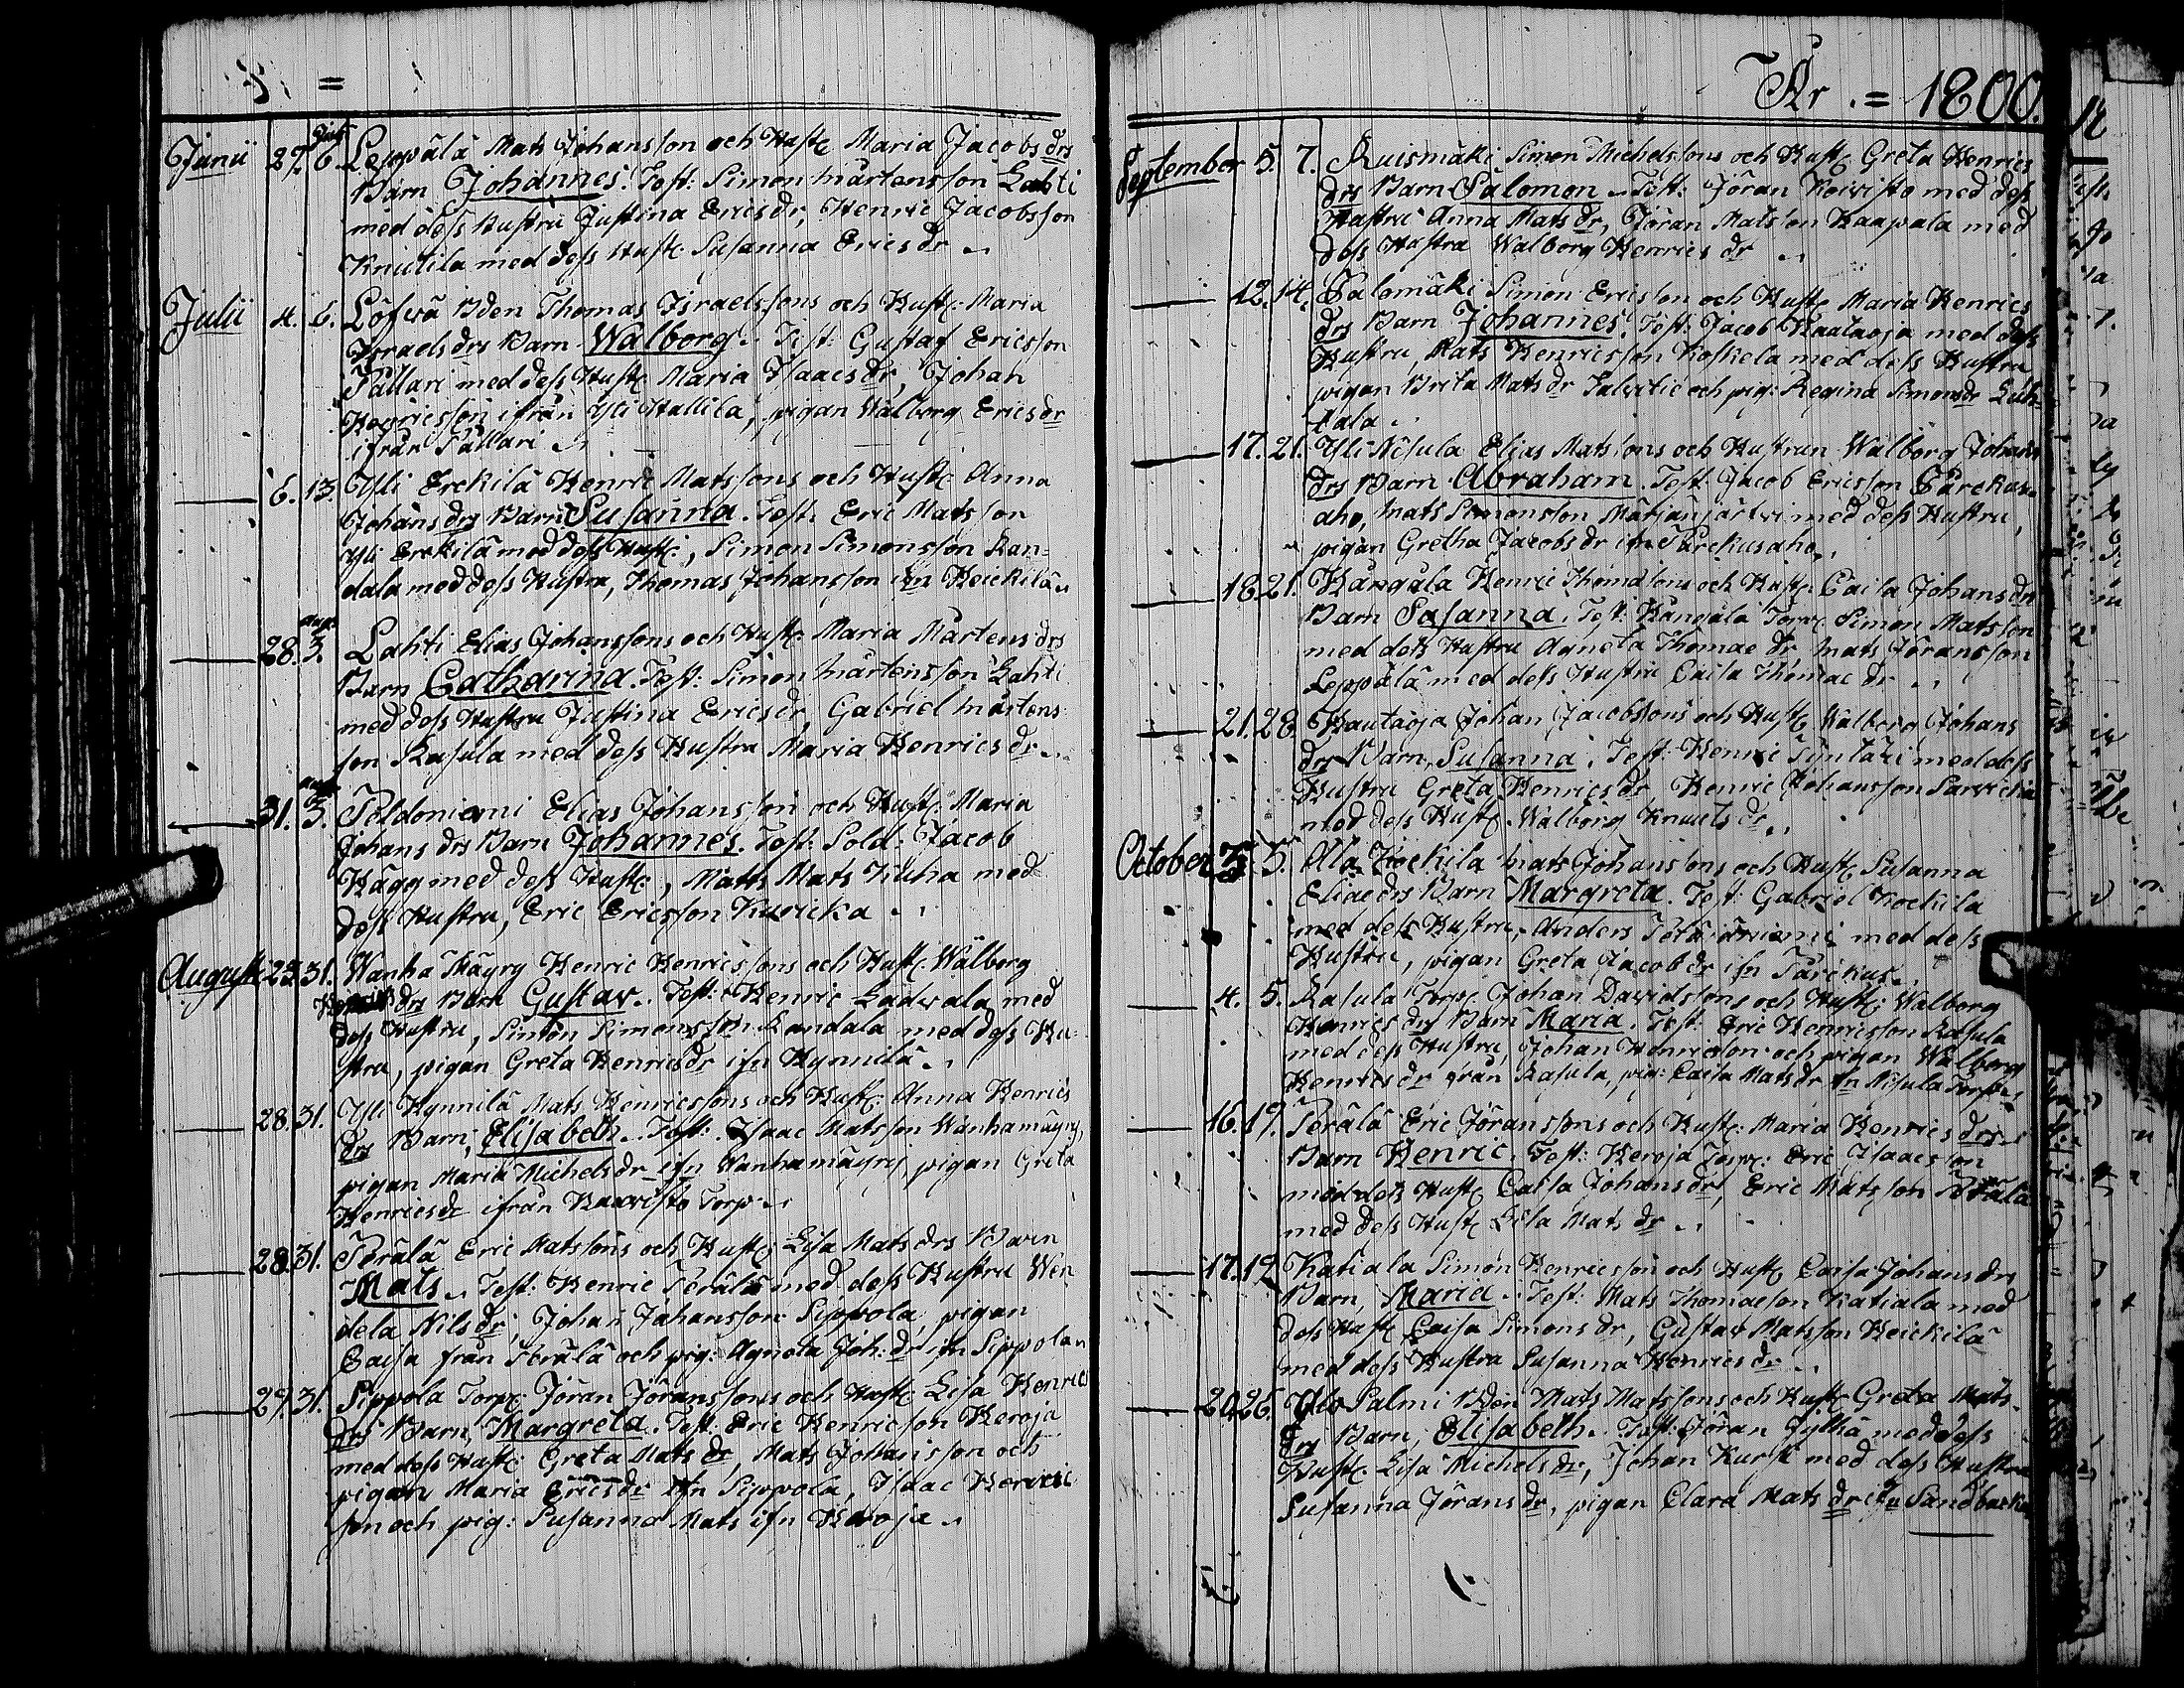 Junii 29. 6. Leppälä Mats Johansson och Hust: Maria Jacobs drs
Barn Johannes. Test: Simon Mårtensson Lahti
med dess Hustru Justina Erics dr, Henric Jacobsson
Knuutila med dess Hust: Susanna Erics dr
Julii 4. 6. Löfwä Bden Thomas Israelssons och Hust: Maria
Israels drs Barn Walborg. Test: Gustaf Ericsson
Pällari med dess Hust: Maria Isaacs dr, Johan
Henricsson ifrån Yli Hallila, pigan Walborg Erics dr
ifrån Pällari
6. 13. Yli Erckilä Henric Matssons och Hust: Anna
Johans drs Barn Susanna. Test: Eric Matsson
Yli Erckilä med dess Hust:, Simon Simonsson Ran=
dala med dess Hustru, Thomas Johansson ifn Heickilä
28. aug. 3. Lahti Elias Johanssons och Hust: Maria Mårtens drs
Barn Catharina. Test: Simon Mårtensson Lahti
med dess Hustru Justina Erics dr, Gabriel Mårtens
son Rasula med dess Hustru Maria Henrics dr
31. 3. Peldoniemi Elias Johansson och Hust: Maria
Johans drs Barn Johannes. Test: Sold: Jacob
Hägg med dess Hust:, Matts Mats Kiuha med
dess Hustru, Eric Ericsson Kuricka
Augusti 25. 31. Wanha Mäyry Henric Henricssons och Hust: Walborg
drs Barn Gustav. Test: Henric Ladwala med
dess Hustru, Simon Simonsson Randala med dess Hu=
stru, pigan Greta Henrics dr ifn Hynnilä
28. 31. Yli Hynnilä Mats Henricssons och Hust: Anna Henrics
drs Barn, Elisabeth. Test: Isaac Matsson Wanhamäyry,
pigan Maria Michels dr ifn Wanhamäyry, pigan Greta
Henrics dr ifrån Kaavisto Torp
28. 31. Perälä Eric Matssons och Hust: Lisa Mats drs Barn
Mats. Test: Henric Perälä med dess Hustru Wen
dela Nils dr, Johan Johansson Sippola, pigan
Caisa från Perälä och pig: Agneta Joh: dr ifn Sippolan
29. 31. Sippola Torp: Jöran Jöranssons och Hust: Lisa Henrics
drs Barn, Margreta. Test: Eric Henricsson Heroja
med dess Hust: Greta Mats dr, Mats Johansson och
pigan Maria Erics dr ifn Sippola, Isaac Henric
son och pig: Susanna Mats ifn Heroja
År = 1800.
September 5. 7. Ruismäki Simon Michelssons och Hust: Greta Henrics
drs Barn Salomon. Test: Jöran Koivisto med dess
Hustru Anna Mats dr, Jöran Matsson Haapala med
dess Hustru Walborg Henrics dr
12. 14. Palomäki Simon Ericsson och Hust: Maria Henrics
drs Barn Johannes. Test: Jacob Hautaoja med dess
Hustru, Mats Henricsson Koskela med dess Hustru
pigan Brita Mats dr Salvitie och pig: Regina Simons dr Luh=
tala
17. 21. Yli Nisula Elias Matssons och Hustrun Walborg Johans
drs Barn Abraham. Test: Jacob Ericsson Pärckus
aho, Mats Simonsson Marjanjärvi med dess Hustru,
pigan Gretha Jacobs dr ifn Pärckusaho
18. 21. Kangala Henric Thomassons och Hust: Caisa Johans drs
Barn Susanna. Test: Kangala Torp: Simon Matsson
med dess Hustru Agneta Thomae dr Mats Jöransson
Leppälä med dess Hustru Caisa Thomae dr
21. 28. Hautaoja Johan Jacobssons och Hust: Walborg Johans
drs Barn, Susanna. Test: Henric Syntäri med dess
Hustru Greta Henrics dr, Henric Johansson Sarvicka
med dess Hust: Walborg Knuets dr
October 3. 5. Ala Kockila Mats Johanssons och Hust: Susanna
Eliae drs Barn Margreta. Test: Gabriel Kockila
med dess Hustru, Anders med dess
Hustru, pigan Greta Jacobs dr ifn Pärckus
4. 5. Rasula Torp: Johan Davidssons och Hust: Walborg
Henrics drs Barn Maria. Test: Eric Henricsson Rasula
med dess Hustru, Johan Henricsson och pigan Walborg
Henrics dr från Rasula, pig: Caisa Mats dr ifn Nisula Torp
16. 19. Perälä Eric Jöranssons och Hust: Maria Henrics drs
Barn Henric. Test: Heroja Torp: Eric Isaacsson
med dess Hust: Caisa Johans dr, Eric Matsson Perälä
med dess Hust: Lisa Mats dr
17. 19. Katiala Simon Henricsson och Hust: Caisa Johans drs
Barn, Maria. Test: Mats Thomaeson Katiala med
dess Hust: Caisa Simons dr, Gustav Matsson Heickilä
med dess Hustru Susanna Henrics dr
20. 26. Ylo Salmi Bden Mats Matssons och Hust: Greta Mats
drs Barn, Elisabeth. Test: Jöran Jylhä med dess
Hust: Lisa Michels dr, Johan Kurki med dess Hustru
Susanna Jörans dr, pigan Clara Mats dr ifn Sandbacka